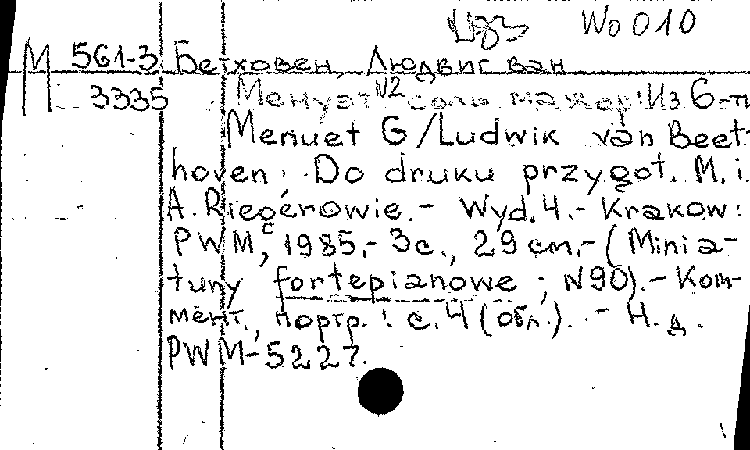 Wo 010
М 561-3 Бетховен, Людвиг ван
3335 Менуэт N2 соль мажор: Из 6-ти
Menuet G / Ludwik van Beet-
hoven. Do druku przygot. M. i.
A. Riegerowie. - Wyd. 4. - Krakow:
PWM, с 1985. - 3 с., 29 см. - (Minia-
tury fortepianowe ; N90). - Ком-
мент., портр.: с. 4 (обл.). - Н. д.
PWM-5227.